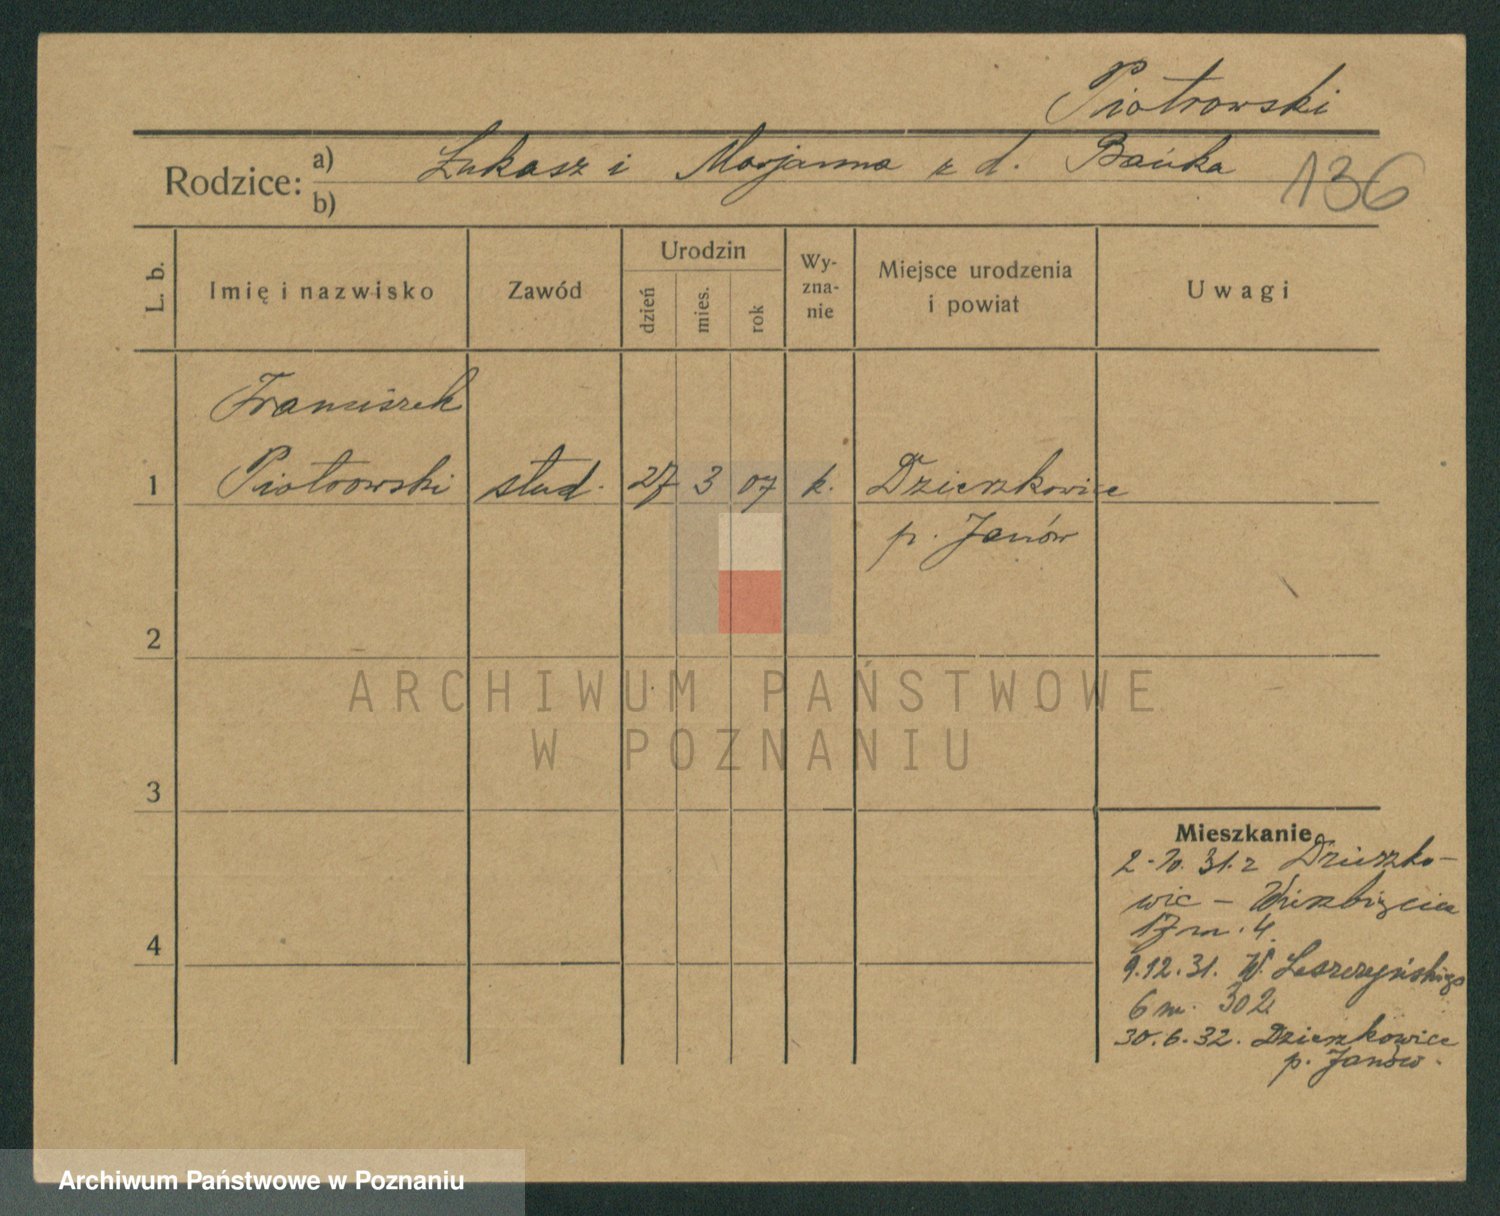 Piotrowski
Rodzice: a) Łukasz i Marjanna z d. Bańka
b)
136
L. b.
Imię i nazwisko
Zawód
Urodzin
dzień
mies.
rok
Wy-
zna-
nie
Miejsce urodzenia
i powiat
Uwagi
Franciszek
1 Piotrowski stud. 27 3 07 k. Dzierzkowice
p. Janów
2
3
4
ARCHIWUM PAŃSTWOWE
W POZNANIU
Mieszkanie
31. z
wic –
17 m. 4.
9.12.31. W. Leszczyńskiego
6 m. 302
30.6.32. Dzierzkowice
p. Janów.
Archiwum Państwowe w Poznaniu